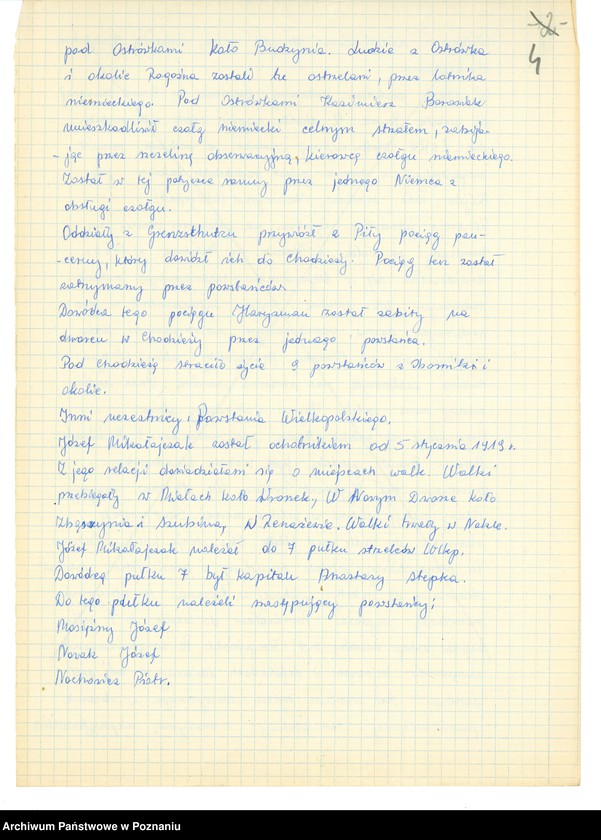 -2-
4
pod Ostrówkami koło Budzynia. Ludzie z Ostrówka
i okolic Rogoźna zostali tu ostrzelani, przez lotnika
niemieckiego. Pod Ostrówkami Kazimierz Baraniak
unieszkodliwił czołg niemiecki celnym strzałem, zabija-
- jąc przez szczelinę obserwacyjną, kierowcę czołgu niemieckiego.
Został w tej potyczce ranny przez jednego Niemca z
obsługi czołgu.
Oddziały z Grenzschutzu przywiózł z Piły pociąg pan-
- cerny, który dowiózł ich do Chodzieży. Pociąg ten został
zatrzymany przez powstańców.
Dowódca tego pociągu został zabity na
dworcu w Chodzieży przez jednego powstańca.
Pod Chodzieżą straciło życie 9 powstańców z Obornik i
okolic.
Inni uczestnicy Powstania Wielkopolskiego.
Józef Mikołajczak został ochotnikiem od 5 stycznia 1919 r.
Z jego relacji dowiedziałam się o miejscach walk. Walki
przebiegały w Miałach koło Wronek, W Nowym Dworze koło
Zbąszynia i Szubina, W . Walki trwały w Nakle.
Józef Mikołajczak należał do 7 pułku strzelców Wlkp.
Dowódcą pułku 7 był kapitan Anastazy Stepka.
Do tego pułku należeli następujący powstańcy:
Mosiężny Józef
Nowak Józef
Nochowicz Piotr.
Archiwum Państwowe w Poznaniu